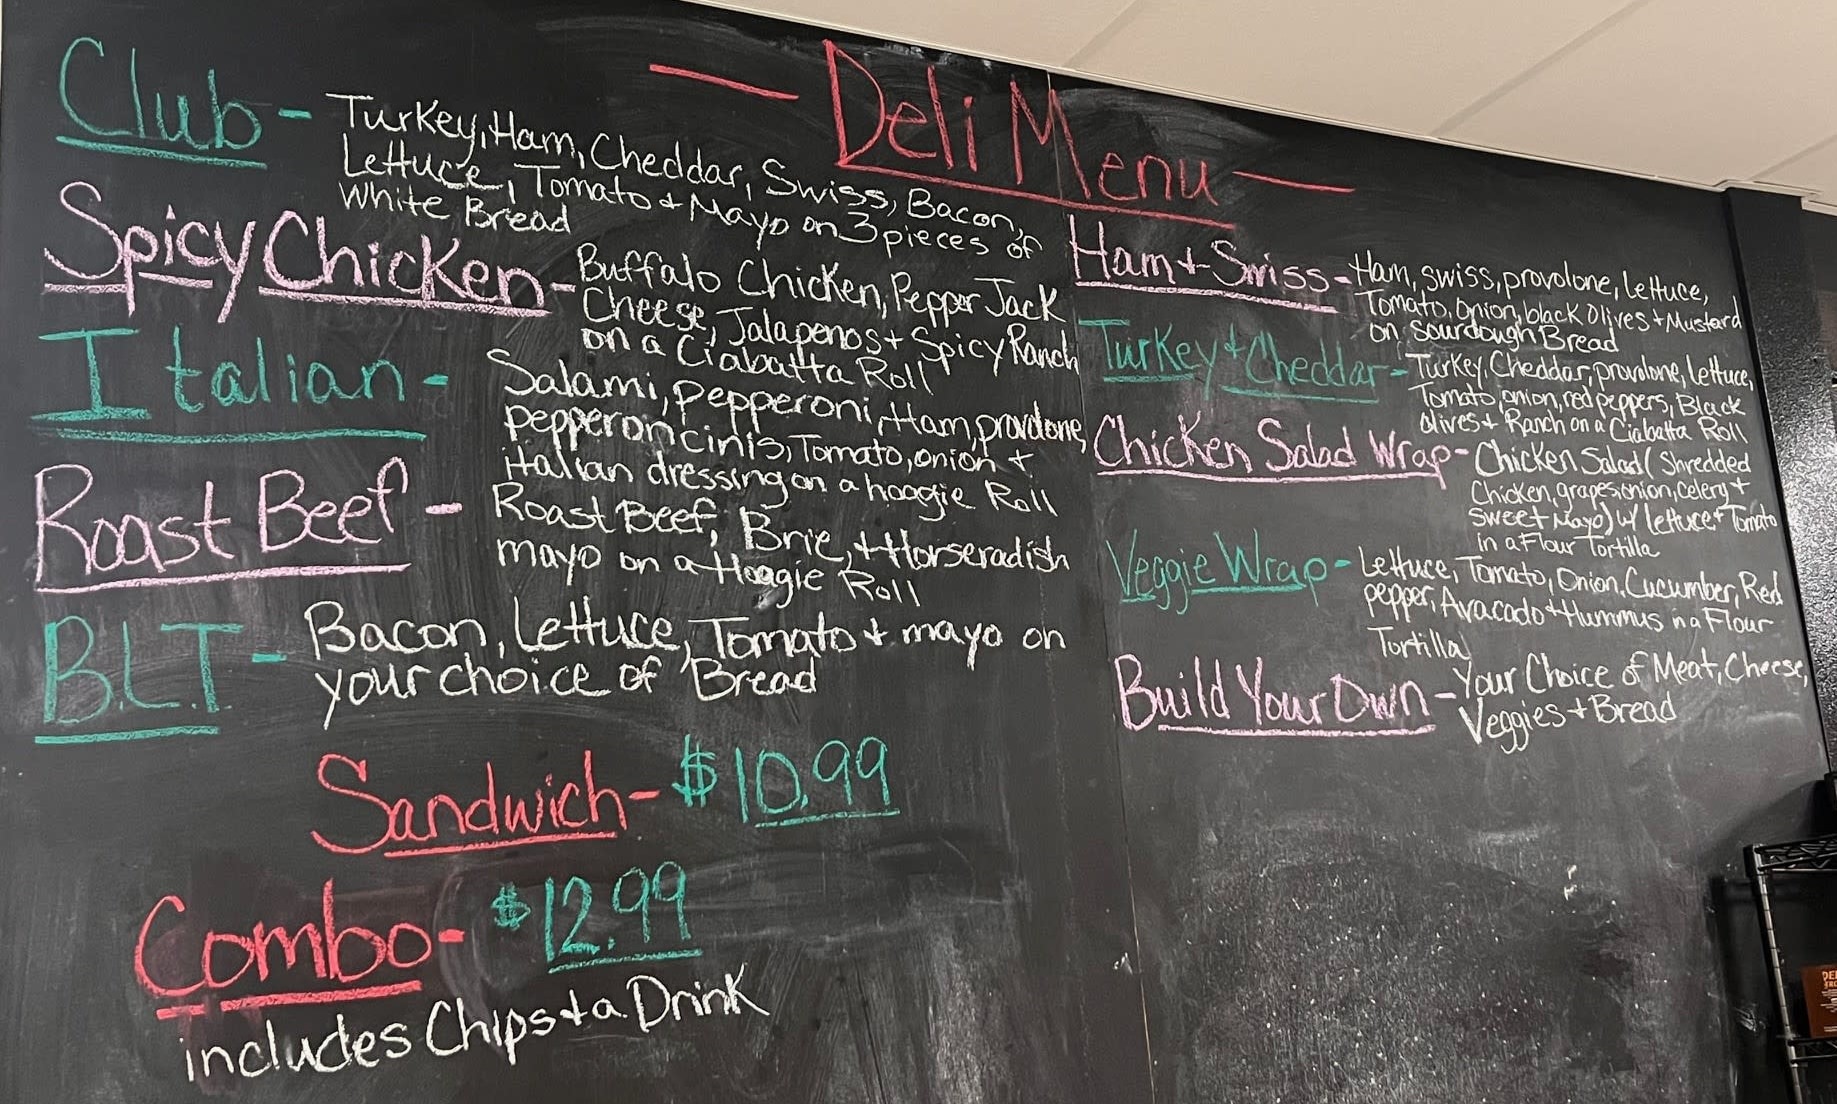 — Deli Menu —
Club - Turkey, Ham, Cheddar, Swiss, Bacon,
Lettuce, Tomato + Mayo on 3 pieces of
White Bread
Spicy Chicken - Buffalo Chicken, Pepper Jack
Cheese, Jalapenos + Spicy Ranch
on a Ciabatta Roll
Italian - Salami, pepperoni, Ham, provolone,
pepperoncinis, Tomato, onion +
italian dressing on a hoagie Roll
Roast Beef - Roast Beef, Brie, + Horseradish
mayo on a Hoagie Roll
B.L.T - Bacon, Lettuce, Tomato + mayo on
your choice of Bread
Sandwich - $10.99
Combo - $12.99
includes Chips + a Drink
Ham + Swiss - Ham, swiss, provolone, lettuce,
Tomato, onion, black olives + Mustard
on sourdough Bread
Turkey + Cheddar - Turkey, Cheddar, provolone, lettuce,
Tomato, onion, red peppers, Black
olives + Ranch on a Ciabatta Roll
Chicken Salad Wrap - Chicken Salad (Shredded
Chicken, grapes, onion, celery +
sweet Mayo) w/ lettuce + Tomato
in a Flour Tortilla
Veggie Wrap - Lettuce, Tomato, Onion, Cucumber, Red
pepper, Avacado + Hummus in a Flour
Tortilla
Build Your Own - Your Choice of Meat, Cheese,
Veggies + Bread